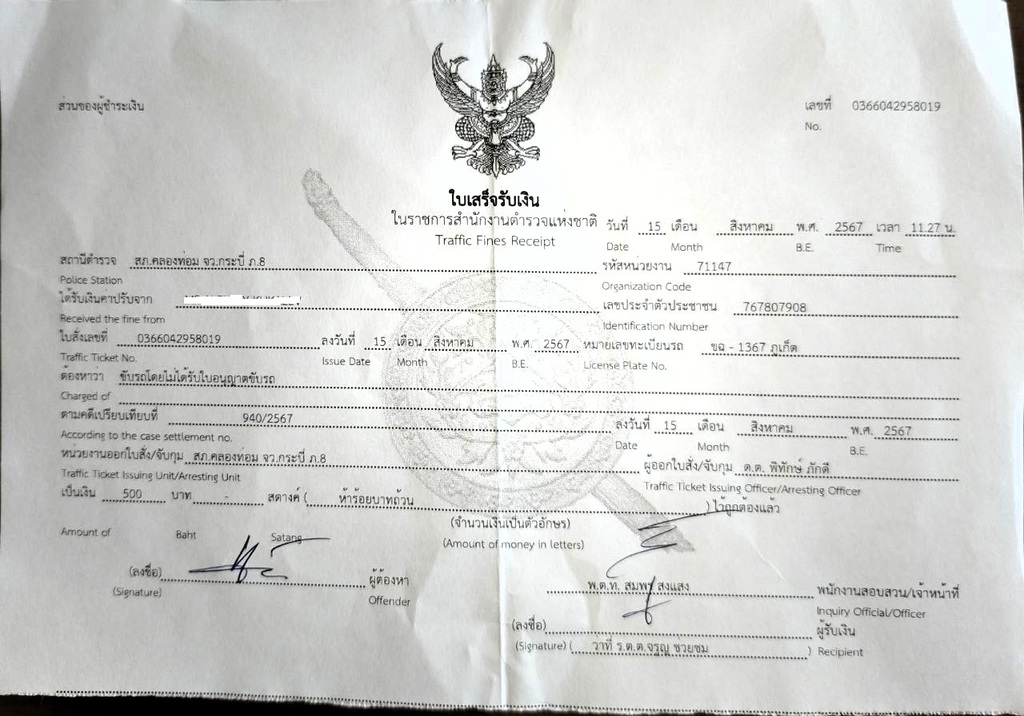 ส่วนของผู้ชำระเงิน
เลขที่ 0366042958019
No.
ใบเสร็จรับเงิน
ในราชการสำนักงานตำรวจแห่งชาติ
Traffic Fines Receipt
วันที่ 15 เดือน สิงหาคม พ.ศ. 2567 เวลา 11.27 น.
Date Month B.E. Time
สถานีตำรวจ สภ.คลองท่อม จว.กระบี่ ภ.8 รหัสหน่วยงาน 71147
Police Station Organization Code
ได้รับเงินค่าปรับจาก เลขประจำตัวประชาชน 767807908
Received the fine from Identification Number
ใบสั่งเลขที่ 0366042958019 ลงวันที่ 15 เดือน สิงหาคม พ.ศ. 2567 หมายเลขทะเบียนรถ ขฉ - 1367 ภูเก็ต
Traffic Ticket No. Issue Date Month B.E. License Plate No.
ต้องหาว่า ขับรถโดยไม่ได้รับใบอนุญาตขับรถ
Charged of
ตามคดีเปรียบเทียบที่ 940/2567 ลงวันที่ 15 เดือน สิงหาคม พ.ศ. 2567
According to the case settlement no. Date Month B.E.
หน่วยงานออกใบสั่ง/จับกุม สภ.คลองท่อม จว.กระบี่ ภ.8 ผู้ออกใบสั่ง/จับกุม ด.ต. พิทักษ์ ภักดี
Traffic Ticket Issuing Unit/Arresting Unit Traffic Ticket Issuing Officer/Arresting Officer
เป็นเงิน 500 บาท - สตางค์ ( ห้าร้อยบาทถ้วน ) ไว้ถูกต้องแล้ว
(จำนวนเงินเป็นตัวอักษร)
Amount of Baht Satang (Amount of money in letters)
(ลงชื่อ) ผู้ต้องหา
(Signature) Offender
พ.ต.ท. สมพร สงแสง พนักงานสอบสวน/เจ้าหน้าที่
Inquiry Official/Officer
(ลงชื่อ) ผู้รับเงิน
(Signature) ( ว่าที่ ร.ต.ต.จรูญ ช่วยชม ) Recipient